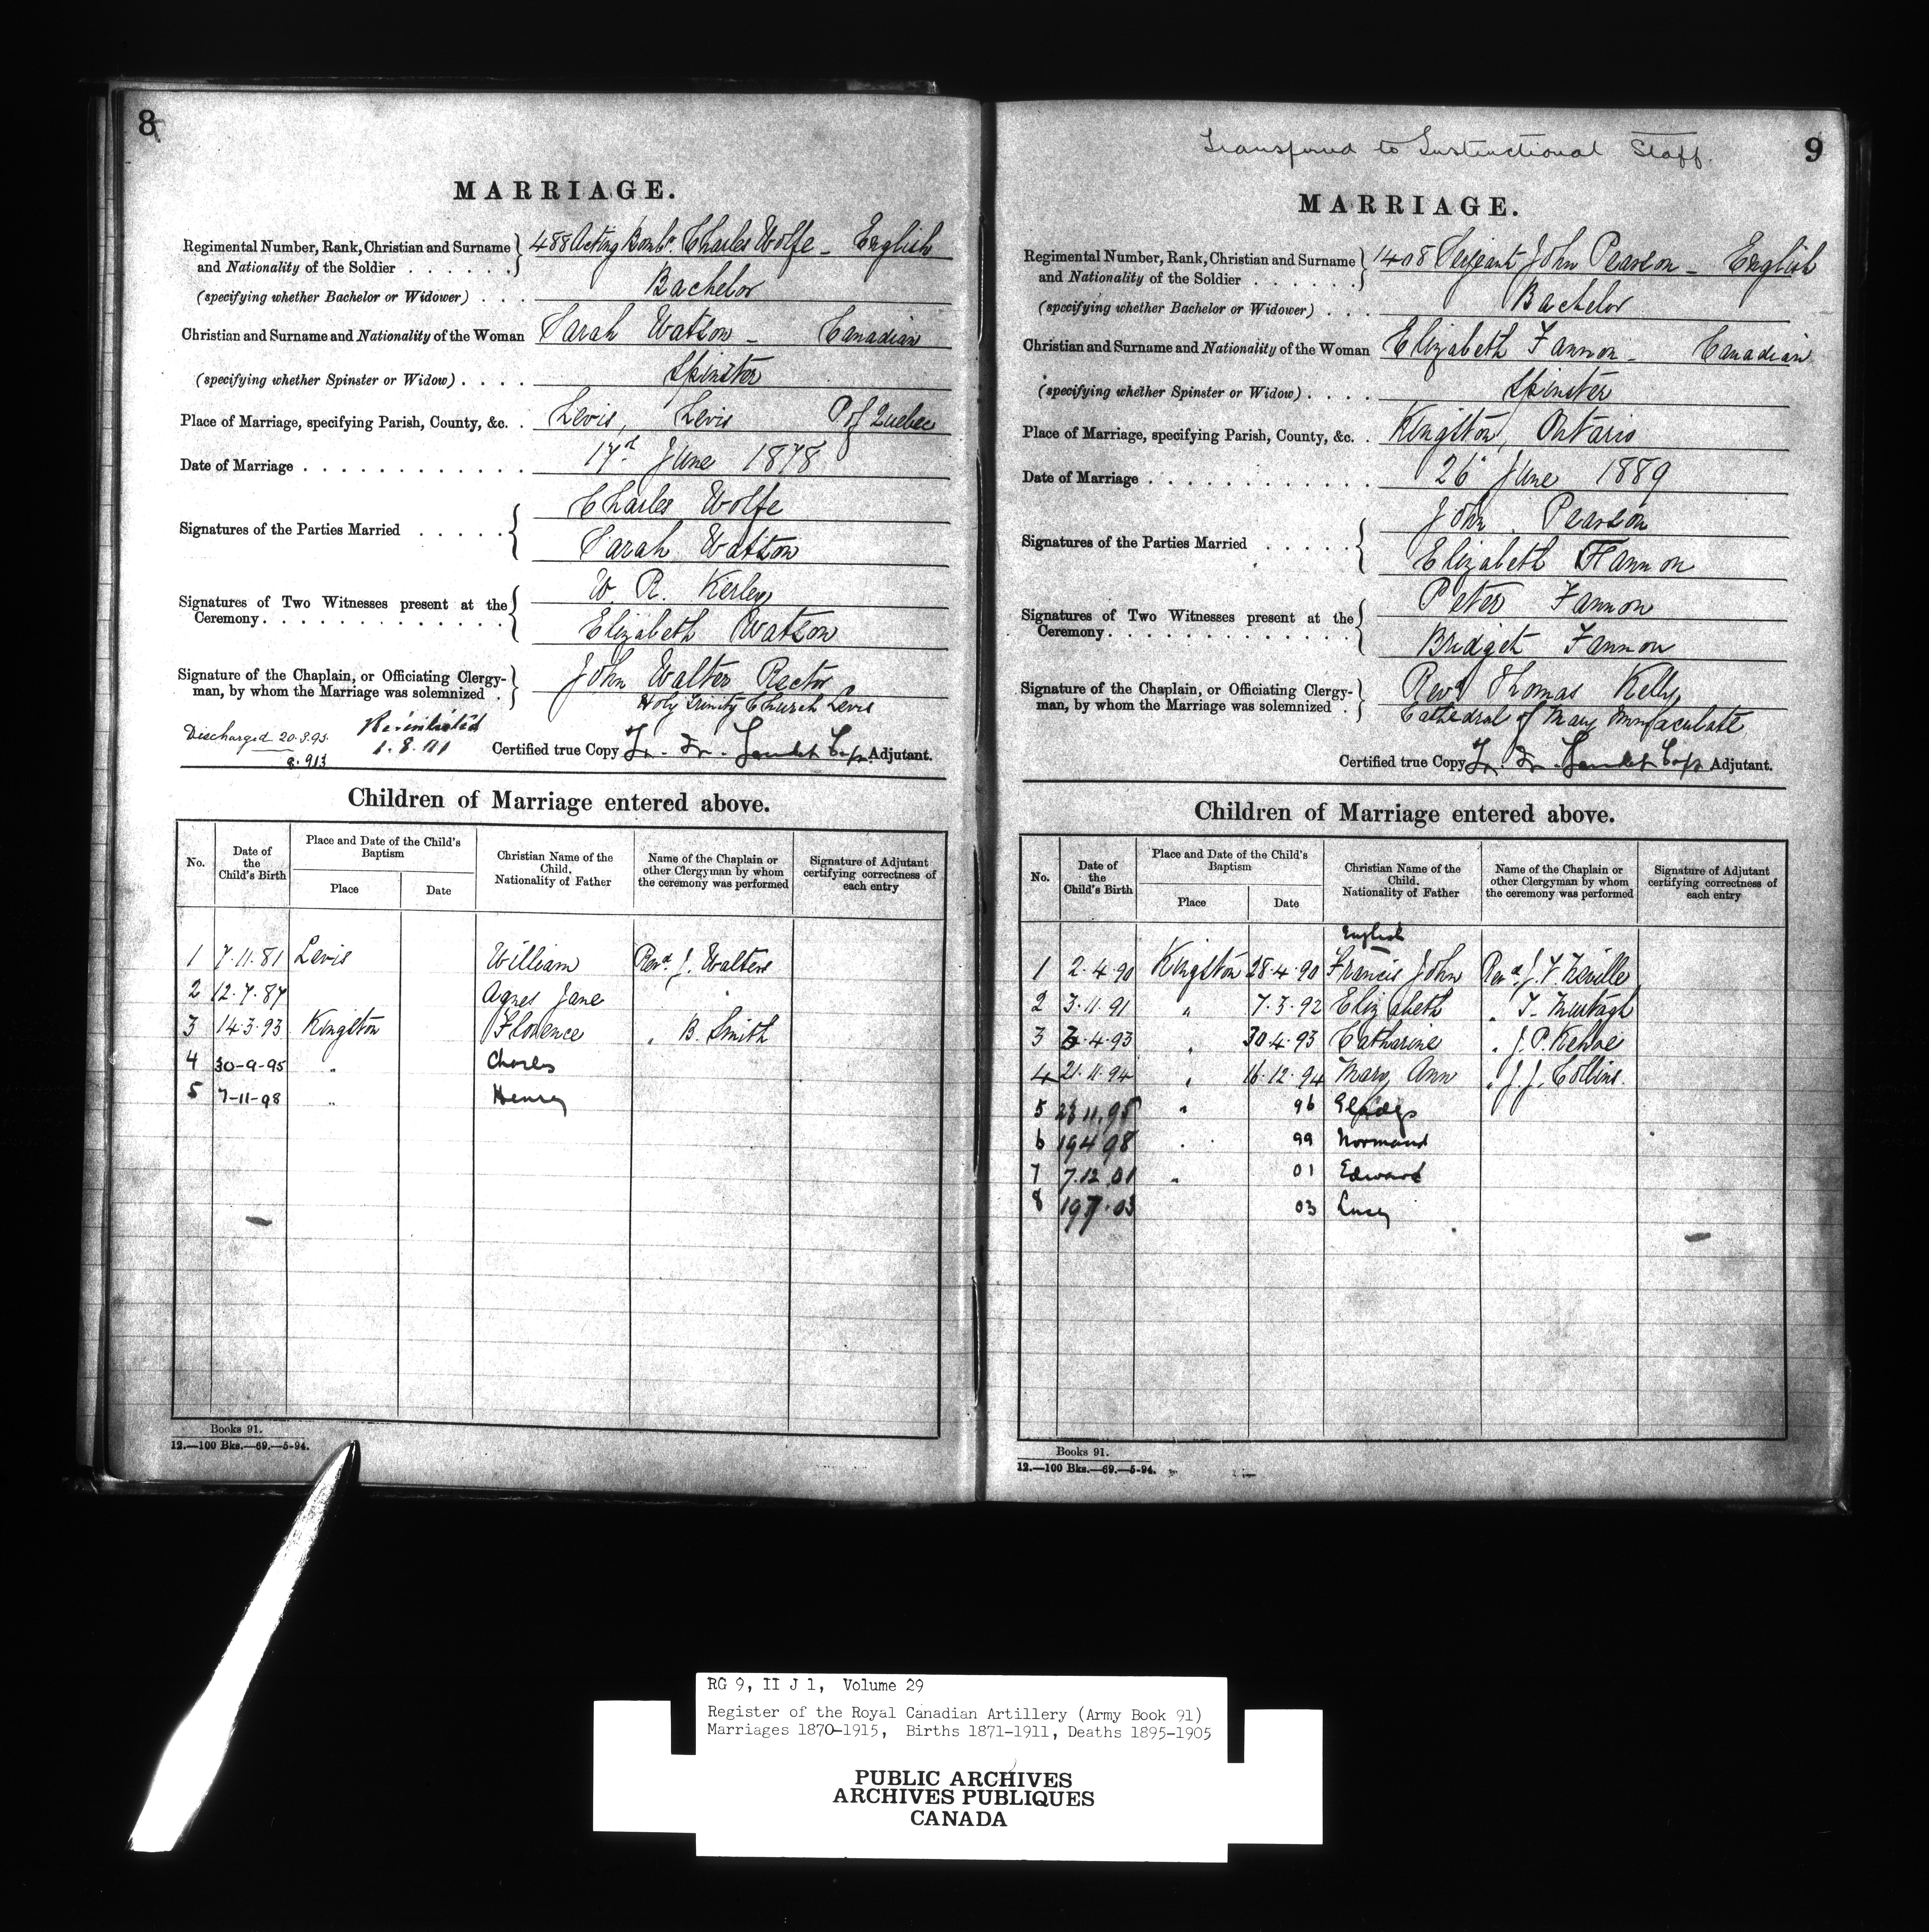 8
MARRIAGE.
Regimental Number, Rank, Christian and Surname and Nationality of the Soldier . . . . . . 488 Acting Bombr. Charles Wolfe - English
(specifying whether Bachelor or Widower) . . . Bachelor
Christian and Surname and Nationality of the Woman Sarah Watson - Canadian
(specifying whether Spinster or Widow) . . . . Spinster
Place of Marriage, specifying Parish, County, &c. . Levis, Levis P of Quebec
Date of Marriage . . . . . . . . . . . . . 17d June 1878
Signatures of the Parties Married . . . . . Charles Wolfe
Sarah Watson
Signatures of Two Witnesses present at the Ceremony. . . . . . . . . . . . . . W. R. Kerley
Elizabeth Watson
Signature of the Chaplain, or Officiating Clergyman, by whom the Marriage was solemnized . John Walter Rector
Holy Trinity Church Levis
Discharged 20.3.95.
Certified true Copy Adjutant.
Children of Marriage entered above.
No. | Date of the Child's Birth | Place and Date of the Child's Baptism | Place | Date | Christian Name of the Child. Nationality of Father | Name of the Chaplain or other Clergyman by whom the ceremony was performed | Signature of Adjutant certifying correctness of each entry
1 7.11.81 Levis William Revd. J. Walters
2 12.7.87 Agnes Jane "
3 14.3.93 Kingston Florence " B. Smith
4 30-9-95 " Charles
5 7-11-98 " Henry
Books 91.
12.—100 Bks.—69.—5-94.
9
Transferred to Instructional Staff.
MARRIAGE.
Regimental Number, Rank, Christian and Surname and Nationality of the Soldier . . . . . . 1408 Sergeant John Pearson - English
(specifying whether Bachelor or Widower) . . . Bachelor
Christian and Surname and Nationality of the Woman Elizabeth Fannon - Canadian
(specifying whether Spinster or Widow) . . . . Spinster
Place of Marriage, specifying Parish, County, &c. . Kingston, Ontario
Date of Marriage . . . . . . . . . . . . 26 June 1889
Signatures of the Parties Married . . . . . John Pearson
Elizabeth Fannon
Signatures of Two Witnesses present at the Ceremony. . . . . . . . . . . . . . Peter Fannon
Bridget Fannon
Signature of the Chaplain, or Officiating Clergyman, by whom the Marriage was solemnized . Revd Thomas Kelly,
Cathedral of Mary Immaculate
Certified true Copy Adjutant.
Children of Marriage entered above.
No. | Date of the Child's Birth | Place and Date of the Child's Baptism | Place | Date | Christian Name of the Child. Nationality of Father | Name of the Chaplain or other Clergyman by whom the ceremony was performed | Signature of Adjutant certifying correctness of each entry
English
1 2.4.90 Kingston 28.4.90 Francis John Revd. J. V. Neville
2 3.11.91 " 7.3.92 Elizabeth " T. Murtagh
3 4.93 " 30.4.93 Catharine " J. P. Kehoe
4 21.11.94 " 16.12.94 Mary Ann " J. J. Collins.
5 23 11.95 " 96 Gladys
6 19 4 98 " 99 Normand
7 7.12.01 " 01 Edward
8 19 7.03 03 Lucy
Books 91.
12.—100 Bks.—69.—5-94.
RG 9, II J 1, Volume 29
Register of the Royal Canadian Artillery (Army Book 91)
Marriages 1870-1915, Births 1871-1911, Deaths 1895-1905
PUBLIC ARCHIVES
ARCHIVES PUBLIQUES
CANADA